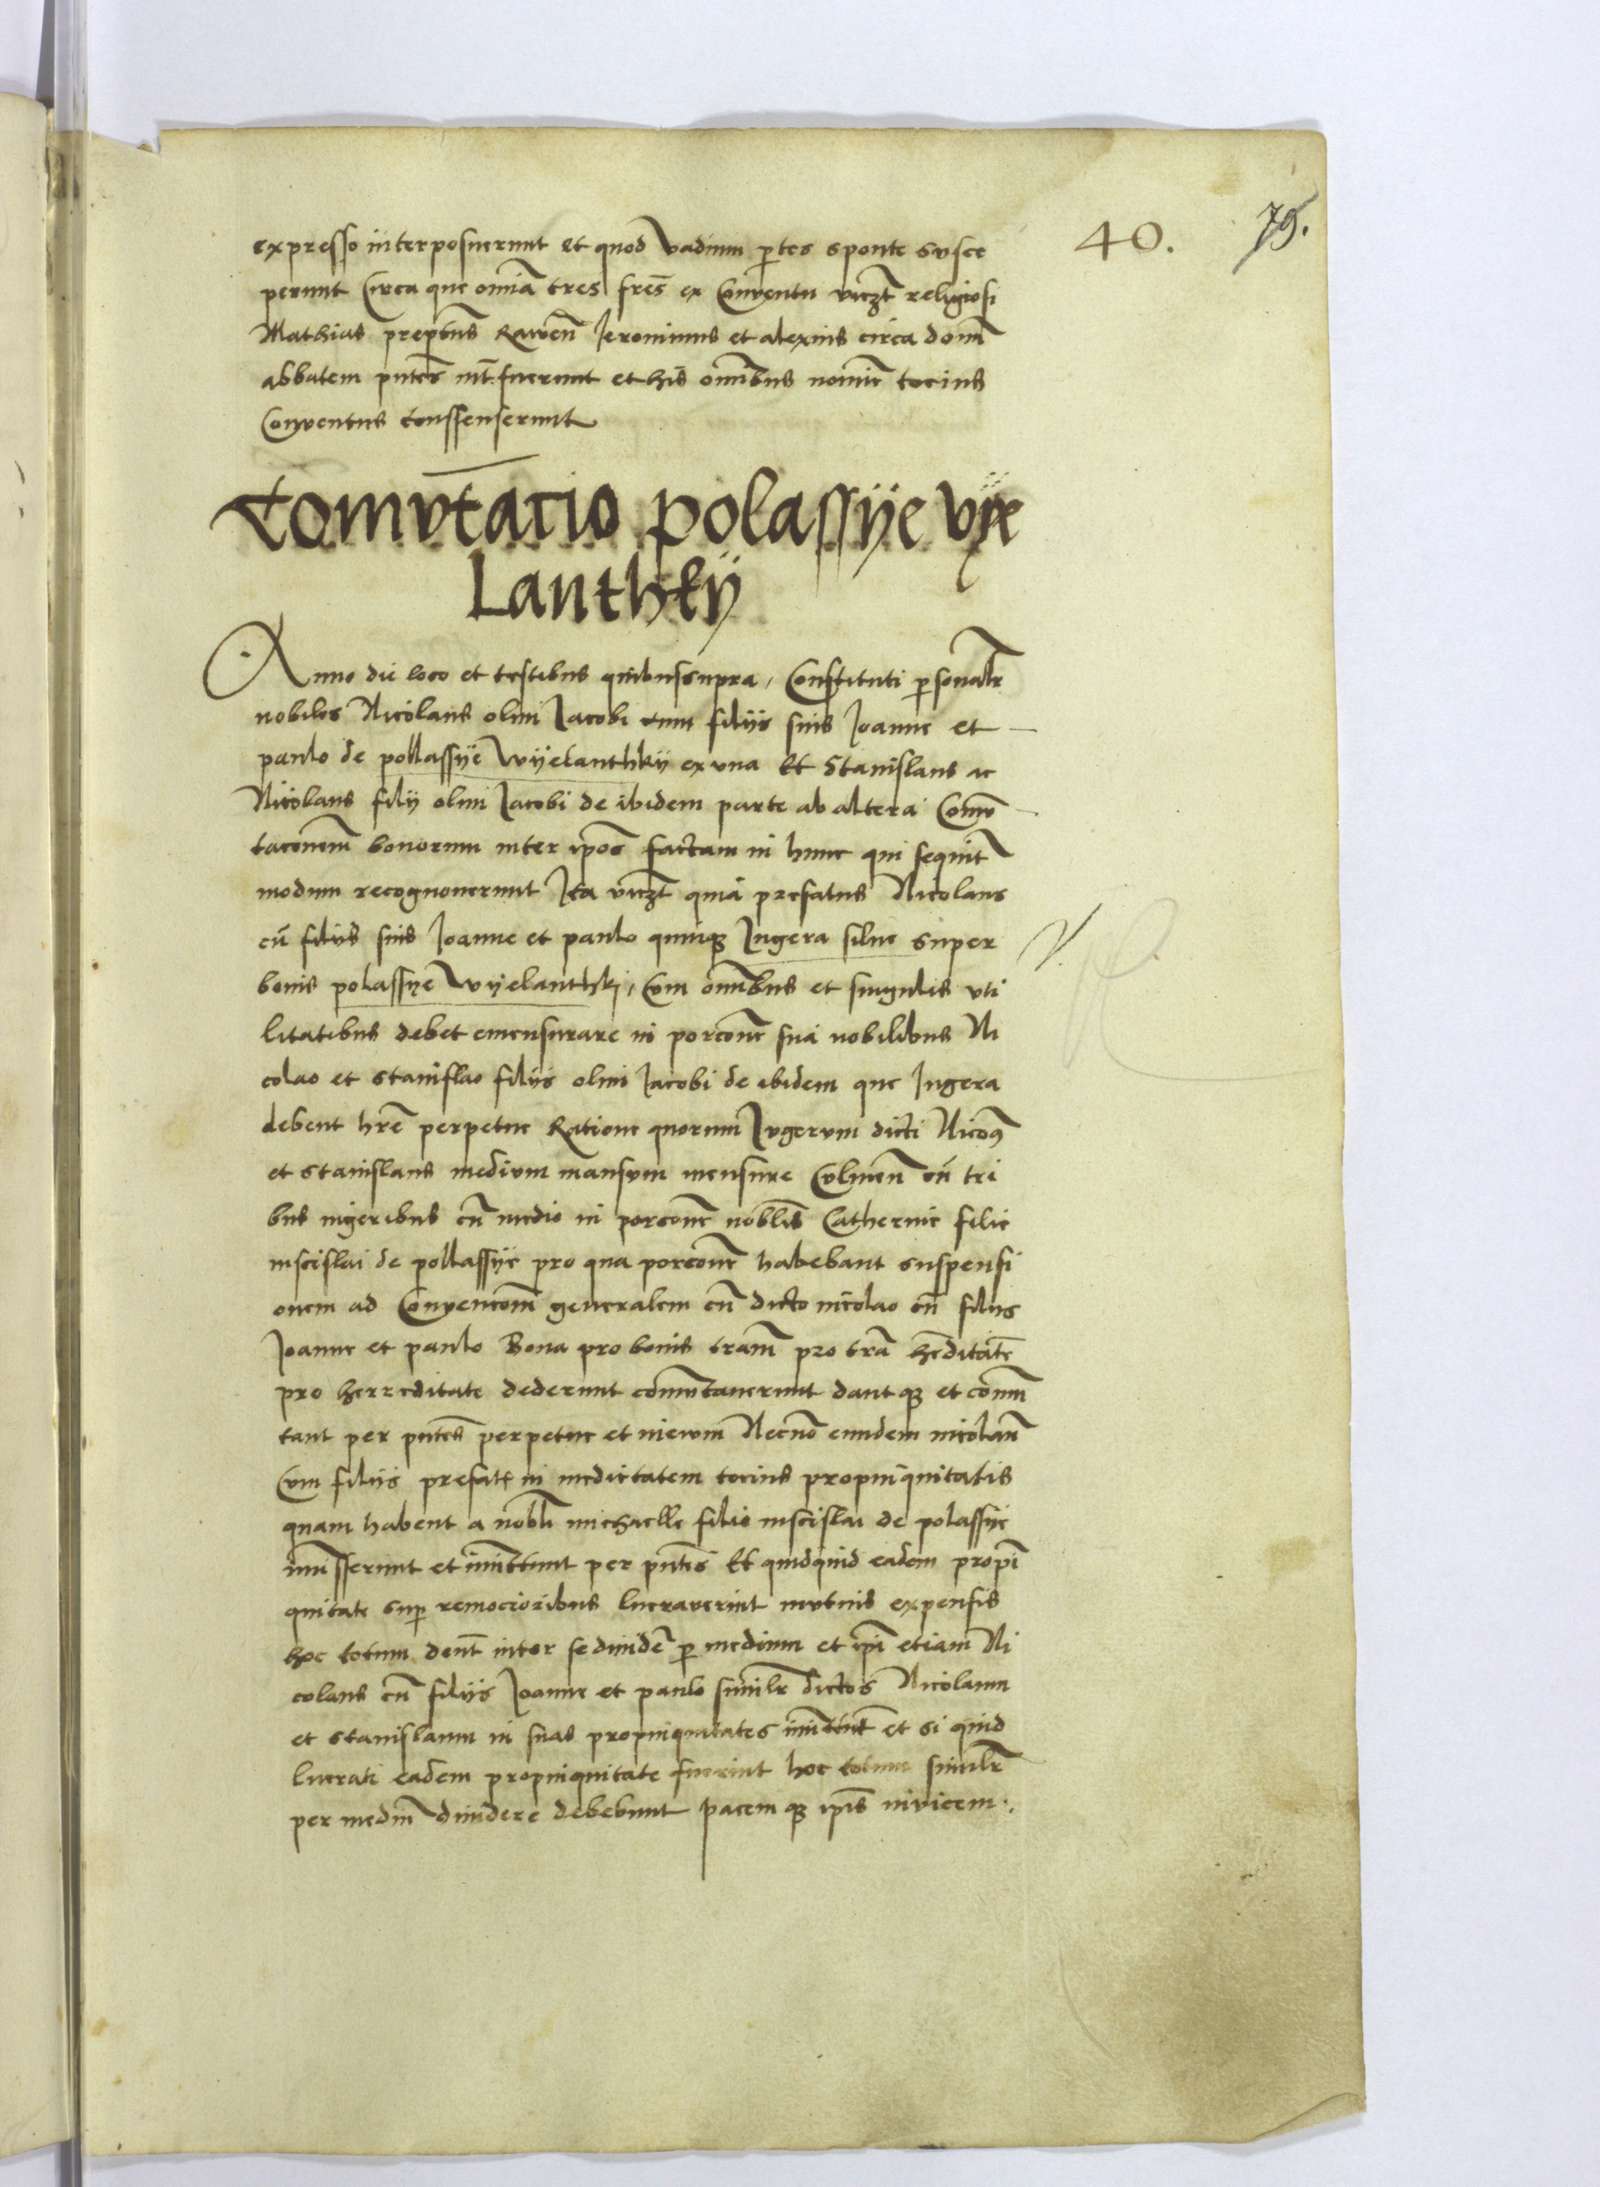 40. 79.
expresso interposuerunt et quod vadium ptes sponte susce
perunt Circa que omia tres fres ex Conventu viczt religiosi
Mathias prepitus Rawen Jeronimus et alexius circa domi
abbatem pntes int fuerunt et his omibus nomie tocius
Conventus conssenserunt
Comutacio polassÿe vÿe
Lanthkÿ
Anno die loco et testibus quibus supra, Constituti psonalr
nobiles Nicolaus olim Jacobi cum filÿs suis Joanne et
paulo de pollassÿe Wÿelanthkÿ ex una Et Stanislaus ac
Nicolaus filÿ olim Jacobi de ibidem parte ab altera Comu
taconem bonorum inter ipos factam in hunc qui sequit
modum recognoverunt Ita viczt quia prefatus Nicolaus
cu filÿs suis Joanne et paulo quinq Jugera silve super
bonis polassÿe Wÿelanthkj, Cum omibus et singulis uti
litatibus debet emensurare in porcone sua nobilibus Ni
colao et stanislao filÿs olim Jacobi de ibidem que Jugera
debent hre perpetue Ratione quorum Jugerum dicti Nicos
et stanislaus medium mansum mensure Culmen cu tri
bus iugeribus cu medio in porcone noblis Catherine filie
mscislai de pollassÿe pro qua porcone habebant suspensi
onem ad Convencom generalem cu dicto nicolao cu filiis
Joanne et paulo Bona pro bonis tram pro tra heditate
pro herreditate dederunt commutaverunt dant q et comu
tant per pntes perpetue et inewm Necno eundem nicolau
Cum filÿs prefate in medietatem tocius propinquitatis
quam habent a nobli michaelle filio mscislai de polassÿe
imisserunt et imittunt per pntes Et quidquid eadem propi
quitate sup remocioribus lucraverint mutuis expensis
hoc totum dent inter se divide p medium et ipi etiam Ni
colaus cu filÿs Joanne et paulo similr dictos Nicolaum
et stanislaum in suas propinquitates imittut et si quid
lucrati eadem propinquitate fuerint hoc totum similr
per mediu dividere debebunt pacem q ipis invicem.